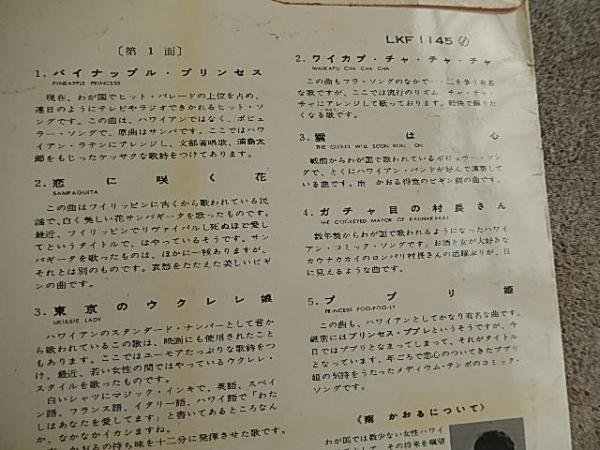 LKF 1145
〔第 1 面〕
1. パイナップル・プリンセス
PINEAPPLE PRINCESS
現在、わが国でヒット・パレードの上位を占め、
連日のようにテレビやラジオできかれるヒット・ソ
ングです。この曲は、ハワイアンではなく、ポピュ
ラー・ソングで、原曲はサンバです。ここではハワ
イアン・ラテンにアレンジし、文部省唱歌、浦島太
郎をもじったケッサクな歌詩をつけてあります。
2. 恋に咲く花
SAMPAGUITA
この曲はフイリッピンに古くから歌われている民
謡で、白く美しい花サンパギータを歌ったものです。
最近、フイリッピンでリヴァイバルし死ぬほど愛し
てというタイトルで、はやっているそうです。サン
パギータを歌ったものは、ほかに一種ありますが、
それとは別のものです。哀愁をたたえた美しいビギ
ンの曲です。
3. 東京のウクレレ娘
UKULELE LADY
ハワイアンのスタンダード・ナンバーとして昔か
ら歌われているこの歌は、映画にも使用されたこと
もあります。ここではユーモアたっぷりな歌詩をつ
け、最近、若い女性の間ではやっているウクレレ・
スタイルを歌ったものです。
白いシャツにマジック・インキで、英語、スペイ
ン語、フランス語、イタリー語、ハワイ語で「わた
しはあなたを愛してます」と書いてあるところなん
か、なかなかイカシますね。
かおるの持ち味を十二分に発揮させた歌です。
2. ワイカプ・チャ・チャ・チャ
WAIKAPU CHA CHA CHA
この曲もフラ・ソングのなかで一、二を争う有名
な歌ですが、ここでは流行のリズム チャ・チャ・
チャにアレンジして歌っております。軽快で踊りた
くなる歌です。
3. 雲は心
THE CLOUDS WILL SOON ROLL
戦前からわが国で歌われているポピュラー・ソン
グで、とくにハワイアン・バンドが好んで演奏して
いる曲です。南 かおる得意のビギン調の曲です。
4. ガチャ目の村長さん
THE COCKEYED MAYOR OF KAUNAKAKAI
数年前からわが国で歌われるようになったハワイ
アン・コミック・ソングです。お酒と女が大好きな
カウナカカイのロンパリ村長さんの活躍ぶりが、目
に見えるような曲です。
5. ププリ姫
PRINCESS POO-POO-LY
この曲も、ハワイアンとしてかなり有名な曲です。
厳密にはプリンセス・ププレというそうですが、今
日ではププリとなまってしまって、それがタイトル
となっています。年ごろで恋心のついてきたププリ
姫の気持をうたったメディウム・テンポのコミック・
ソングです。
《南 かおるについて》
わが国では数少ない女性ハワイ
て、その将来を嘱望